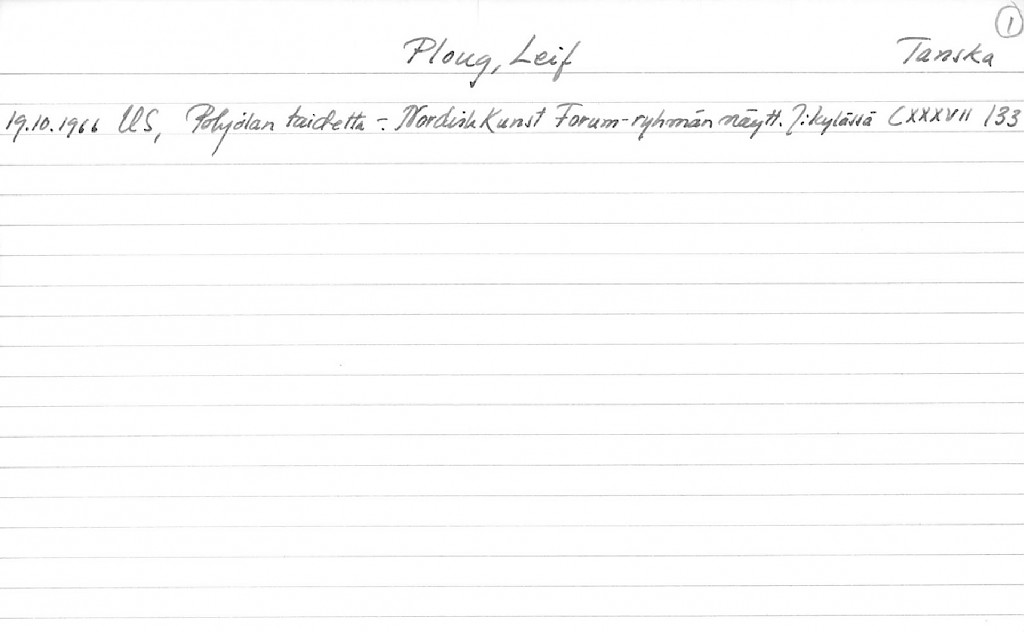 1
Ploug, Leif Tanska
19.10.1966 US, Pohjolan taidetta -:- Nordisk Kunst Forum-ryhmän näytt. J:kylässä CXXXVII /33